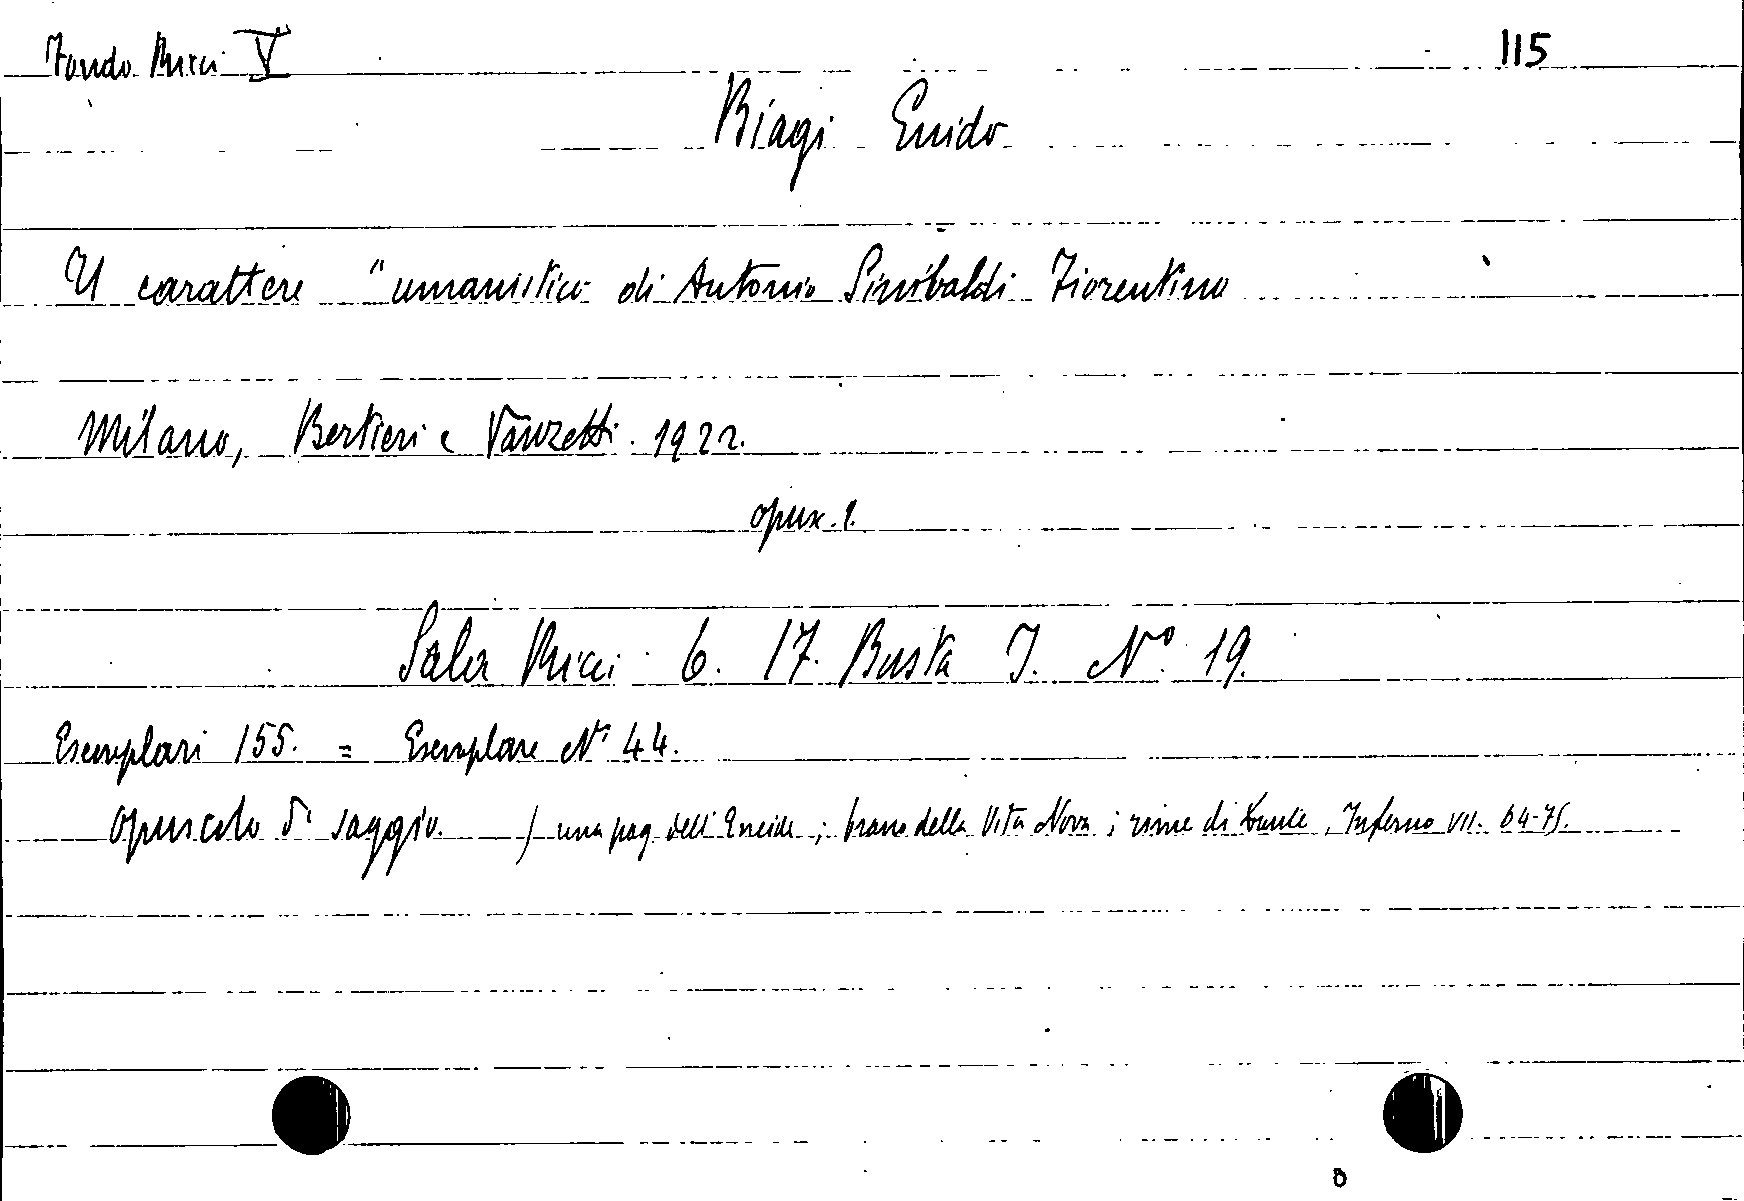 Fondo Ricci V 115
Biagi Guido
Il carattere "umanistico di Antonio Sinibaldi Fiorentino
Milano, Bertieri e Vanzetti. 1922.
opusc. 1.
Sala Ricci 6. 17. Busta I. N° 19.
Esemplari 155. = Esemplare N° 44.
opuscolo di saggio. ) una pag. dell'Eneide ; brano della Vita Nova ; rime di Dante, Inferno VII. 64-75.